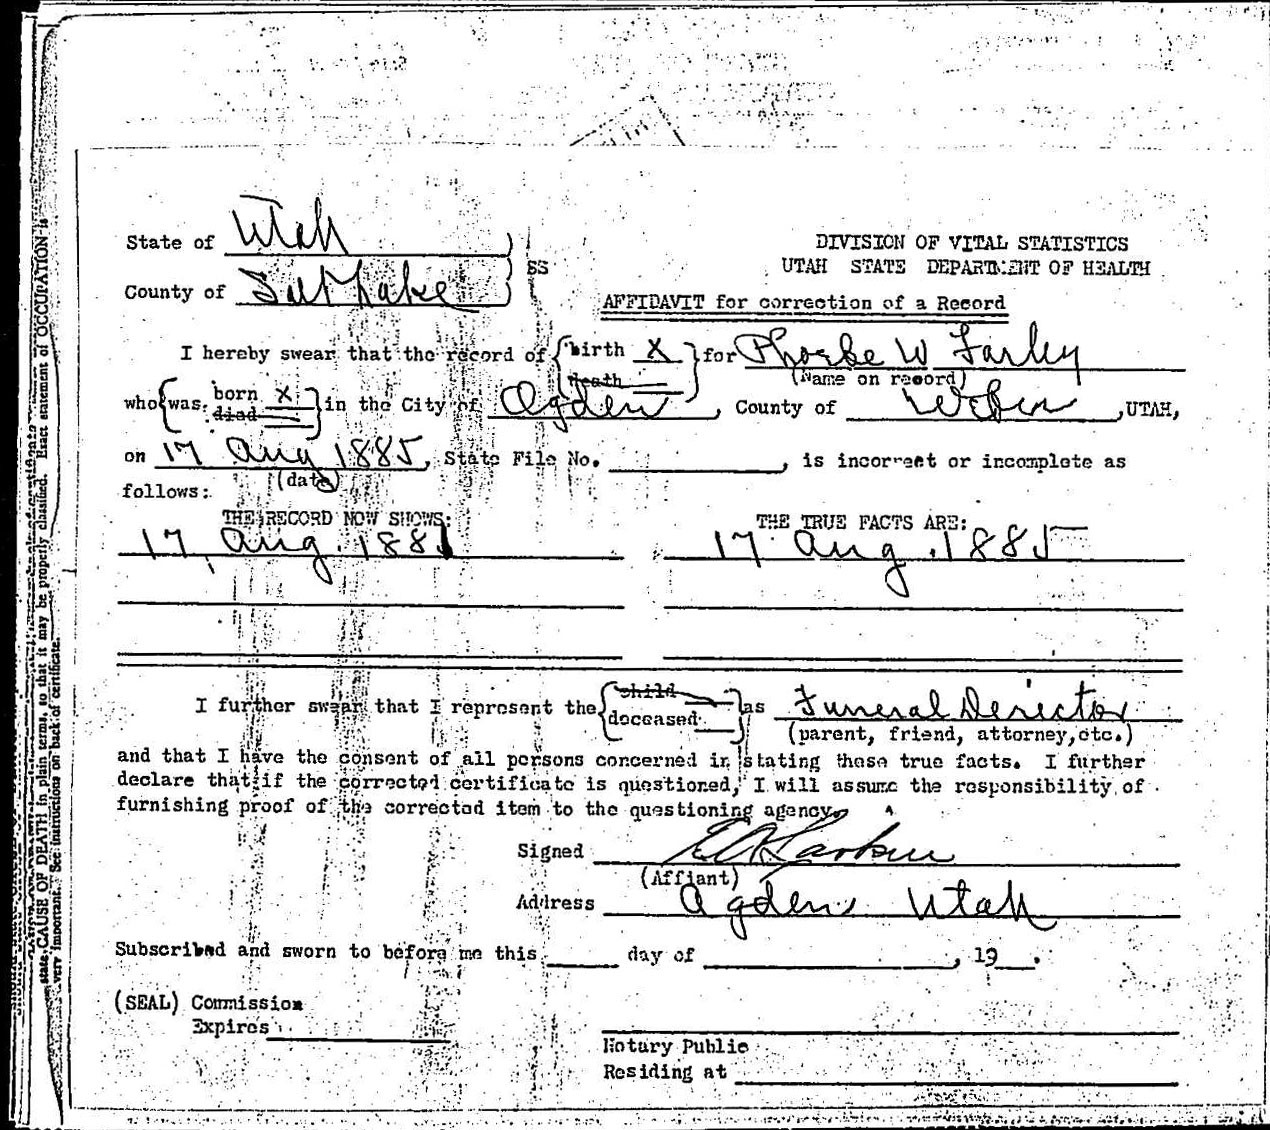 State of Utah
County of Salt Lake
SS
DIVISION OF VITAL STATISTICS
UTAH STATE DEPARTMENT OF HEALTH
AFFIDAVIT for correction of a Record
I hereby swear that the record of birth X death for Phoebe W Farley
(Name on record)
who was born X died in the City of Ogden, County of Weber, UTAH,
on 17 Aug 1885, State File No. , is incorrect or incomplete as
(date)
follows:
THE RECORD NOW SHOWS: THE TRUE FACTS ARE:
17, Aug. 188 17 Aug. 1885
I further swear that I represent the child deceased as Funeral Derictor
(parent, friend, attorney, etc.)
and that I have the consent of all persons concerned in stating these true facts. I further
declare that if the corrected certificate is questioned, I will assume the responsibility of
furnishing proof of the corrected item to the questioning agency.
Signed Larkin
(Affiant)
Address Ogden Utah
Subscribed and sworn to before me this day of , 19 .
(SEAL) Commission
Expires
Notary Public
Residing at
state CAUSE OF DEATH in plain terms, so that it may be properly classified. Exact statement of OCCUPATION is
very important. See instructions on back of certificate.